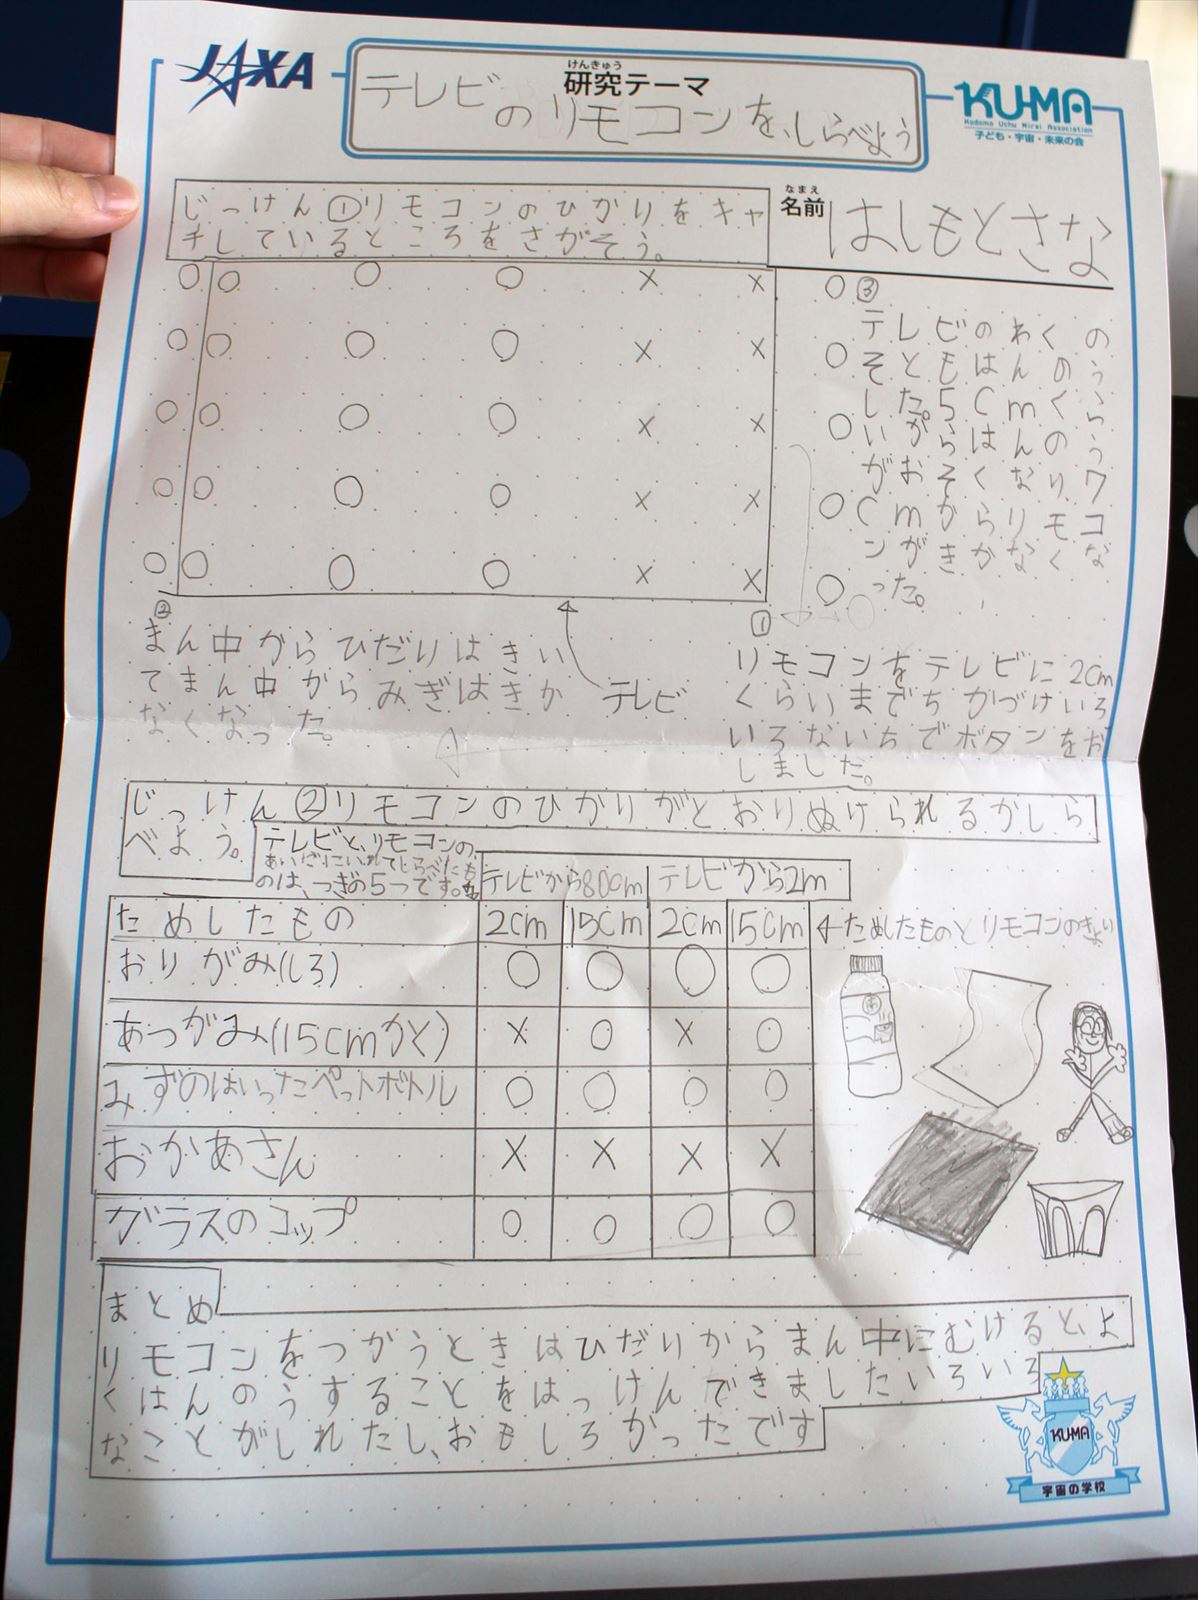 JAXA
けんきゅう
研究テーマ
テレビのリモコンを、しらべよう
KU-MA
Kodomo Uchu Mirai Association
子ども・宇宙・未来の会
なまえ
名前
はしもとさな
じっけん①リモコンのひかりをキャ
チしているところをさがそう。
○ ○ ○ ○ × ×
○ ○ ○ ○ × ×
○ ○ ○ ○ × ×
○ ○ ○ ○ × ×
○ ○ ○ ○ × ×
○
○
○
○
○
③
テレビのわくの
そともはんのう
した。5Cmくら
いがらはんのう
がおそくなり、7
Cmからリモコ
ンがきかなくな
った。
②
まん中からひだりはきい
てまん中からみぎはきか
なくなった。
テレビ
①
リモコンをテレビに2Cm
くらいまでちかづけいろ
いろないちでボタンをお
しました。
じっけん②リモコンのひかりがとおりぬけられるかしら
べよう。
テレビと、リモコンの、
あいだにいれてしらべたも
のは、つぎの5つです。
テレビから800m テレビから2m
ためしたもの 2Cm 15Cm 2Cm 15Cm ←ためしたものとリモコンのきょい
おりがみ(しろ) ○ ○ ○ ○
あつがみ(15Cmかく) × ○ × ○
みずのはいったペットボトル ○ ○ ○ ○
おかあさん × × × ×
ガラスのコップ ○ ○ ○ ○
まとめ
リモコンをつかうときはひだりからまん中にむけると、よ
くはんのうすることをはっけんできましたいろいろ
なことがしれたし、おもしろかったです
KU-MA
宇宙の学校